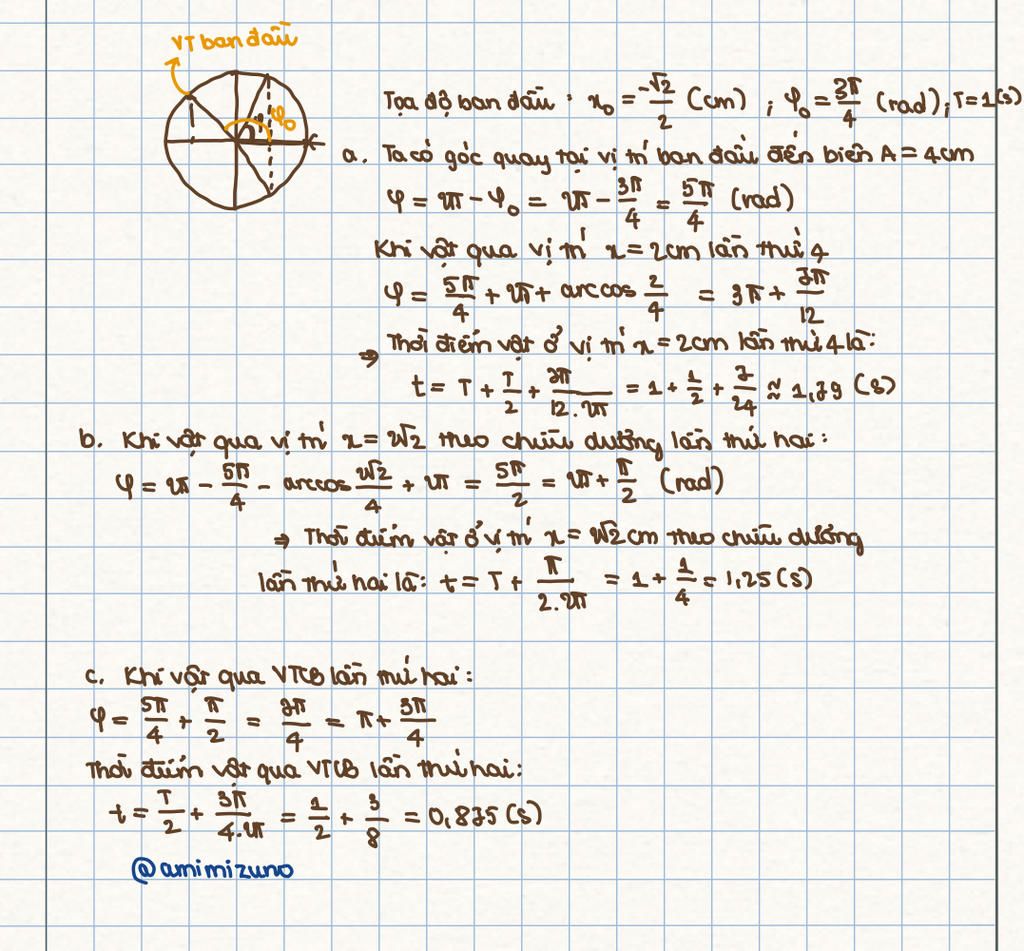 VT ban đầu
φ φ₀
Tọa độ ban đầu : x₀ = -√2/2 (cm) ; φ₀ = 3π/4 (rad) ; T = 1 (s)
a. Ta có góc quay tại vị trí ban đầu đến biên A = 4cm
φ = 2π - φ₀ = 2π - 3π/4 = 5π/4 (rad)
Khi vật qua vị trí x = 2cm lần thứ 4
φ = 5π/4 + 2π + arccos 2/4 = 3π + 7π/12
⇒ Thời điểm vật ở vị trí x = 2cm lần thứ 4 là:
t = T + T/2 + 7π/12.2π = 1 + 1/2 + 7/24 ≈ 1,79 (s)
b. Khi vật qua vị trí x = 2√2 theo chiều dương lần thứ hai :
φ = 2π - 5π/4 - arccos 2√2/4 + 2π = 5π/2 = 2π + π/2 (rad)
⇒ Thời điểm vật ở vị trí x = 2√2 cm theo chiều dương
lần thứ hai là: t = T + π/2.2π = 1 + 1/4 = 1,25 (s)
c. Khi vật qua VTCB lần thứ hai :
φ = 5π/4 + π/2 = 7π/4 = π + 3π/4
Thời điểm vật qua VTCB lần thứ hai:
t = T/2 + 3π/4.2π = 1/2 + 3/8 = 0,875 (s)
@amimizuno